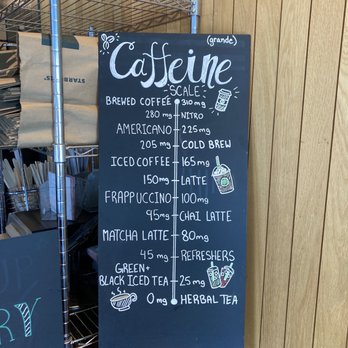 (grande)
Caffeine
SCALE
BREWED COFFEE 310mg
280 mg NITRO
AMERICANO 225mg
205 mg COLD BREW
ICED COFFEE 165mg
150mg LATTE
FRAPPUCCINO 100mg
95mg CHAI LATTE
MATCHA LATTE 80mg
45 mg REFRESHERS
GREEN +
BLACK ICED TEA 25mg
0mg HERBAL TEA
STARBUCKS
RY